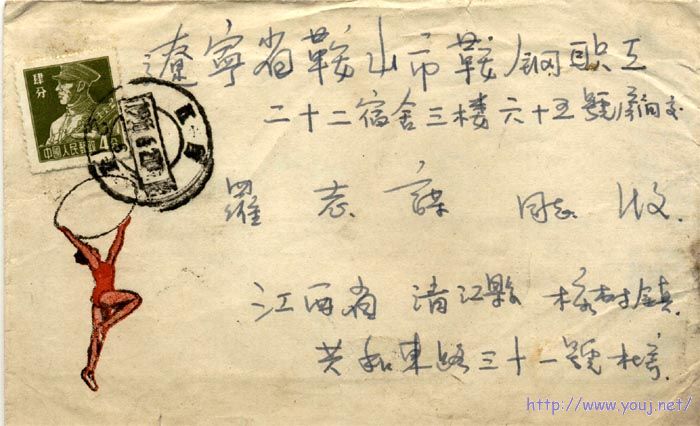 肆分
中國人民郵政 4
遼宁省鞍山市鞍鋼职工
二十二宿舍三楼六十五號房间交
羅志 同志收
江西省清江縣樟树鎮
共和東路三十一號杜寄
http://www.youj.net/